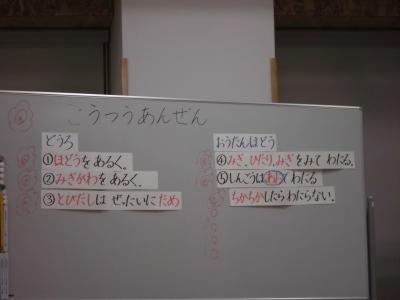 こうつうあんぜん
どうろ
①ほどうをあるく。
②みぎがわをあるく。
③とびだしは ぜったいにだめ
おうだんほどう
④みぎ、ひだり、みぎをみて わたる。
⑤しんごうはあおでわたる
ちかちかしたらわたらない。